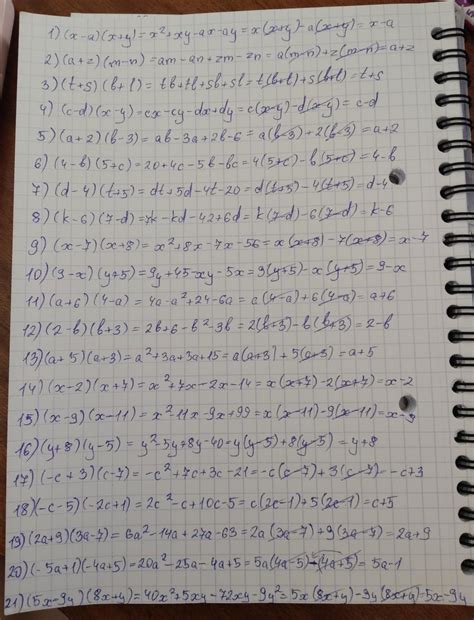 1) (x-a)(x+y)=x²+xy-ax-ay=x(x+y)-a(x+y)=x-a
2) (a+z)(m-n)=am-an+zm-zn=a(m-n)+z(m-n)=a+z
3) (t+s)(b+l)=tb+tl+sb+sl=t(b+l)+s(b+l)=t+s
4) (c-d)(x-y)=cx-cy-dx+dy=c(x-y)-d(x-y)=c-d
5) (a+2)(b-3)=ab-3a+2b-6=a(b-3)+2(b-3)=a+2
6) (4-b)(5+c)=20+4c-5b-bc=4(5+c)-b(5+c)=4-b
7) (d-4)(t+5)=dt+5d-4t-20=d(t+5)-4(t+5)=d-4
8) (k-6)(7-d)=7k-kd-42+6d=k(7-d)-6(7-d)=k-6
9) (x-7)(x+8)=x²+8x-7x-56=x(x+8)-7(x+8)=x-7
10) (9-x)(y+5)=9y+45-xy-5x=9(y+5)-x(y+5)=9-x
11) (a+6)(4-a)=4a-a²+24-6a=a(4-a)+6(4-a)=a+6
12) (2-b)(b+3)=2b+6-b²-3b=2(b+3)-b(b+3)=2-b
13) (a+5)(a+3)=a²+3a+3a+15=a(a+3)+5(a+3)=a+5
14) (x-2)(x+7)=x²+7x-2x-14=x(x+7)-2(x+7)=x-2
15) (x-9)(x-11)=x²-11x-9x+99=x(x-11)-9(x-11)=x-9
16) (y+8)(y-5)=y²-5y+8y-40=y(y-5)+8(y-5)=y+8
17) (-c+3)(c-7)=-c²+7c+3c-21=-c(c-7)+3(c-7)=-c+3
18) (-c-5)(-2c+1)=2c²-c+10c-5=c(2c-1)+5(2c-1)=c+5
19) (2a+9)(3a-7)=6a²-14a+27a-63=2a(3a-7)+9(3a-7)=2a+9
20) (-5a+1)(-4a+5)=20a²-25a-4a+5=5a(4a-5)-(4a+5)=5a-1
21) (5x-9y)(8x+y)=40x²+5xy-72xy-9y²=5x(8x+y)-9y(8x+y)=5x-9y